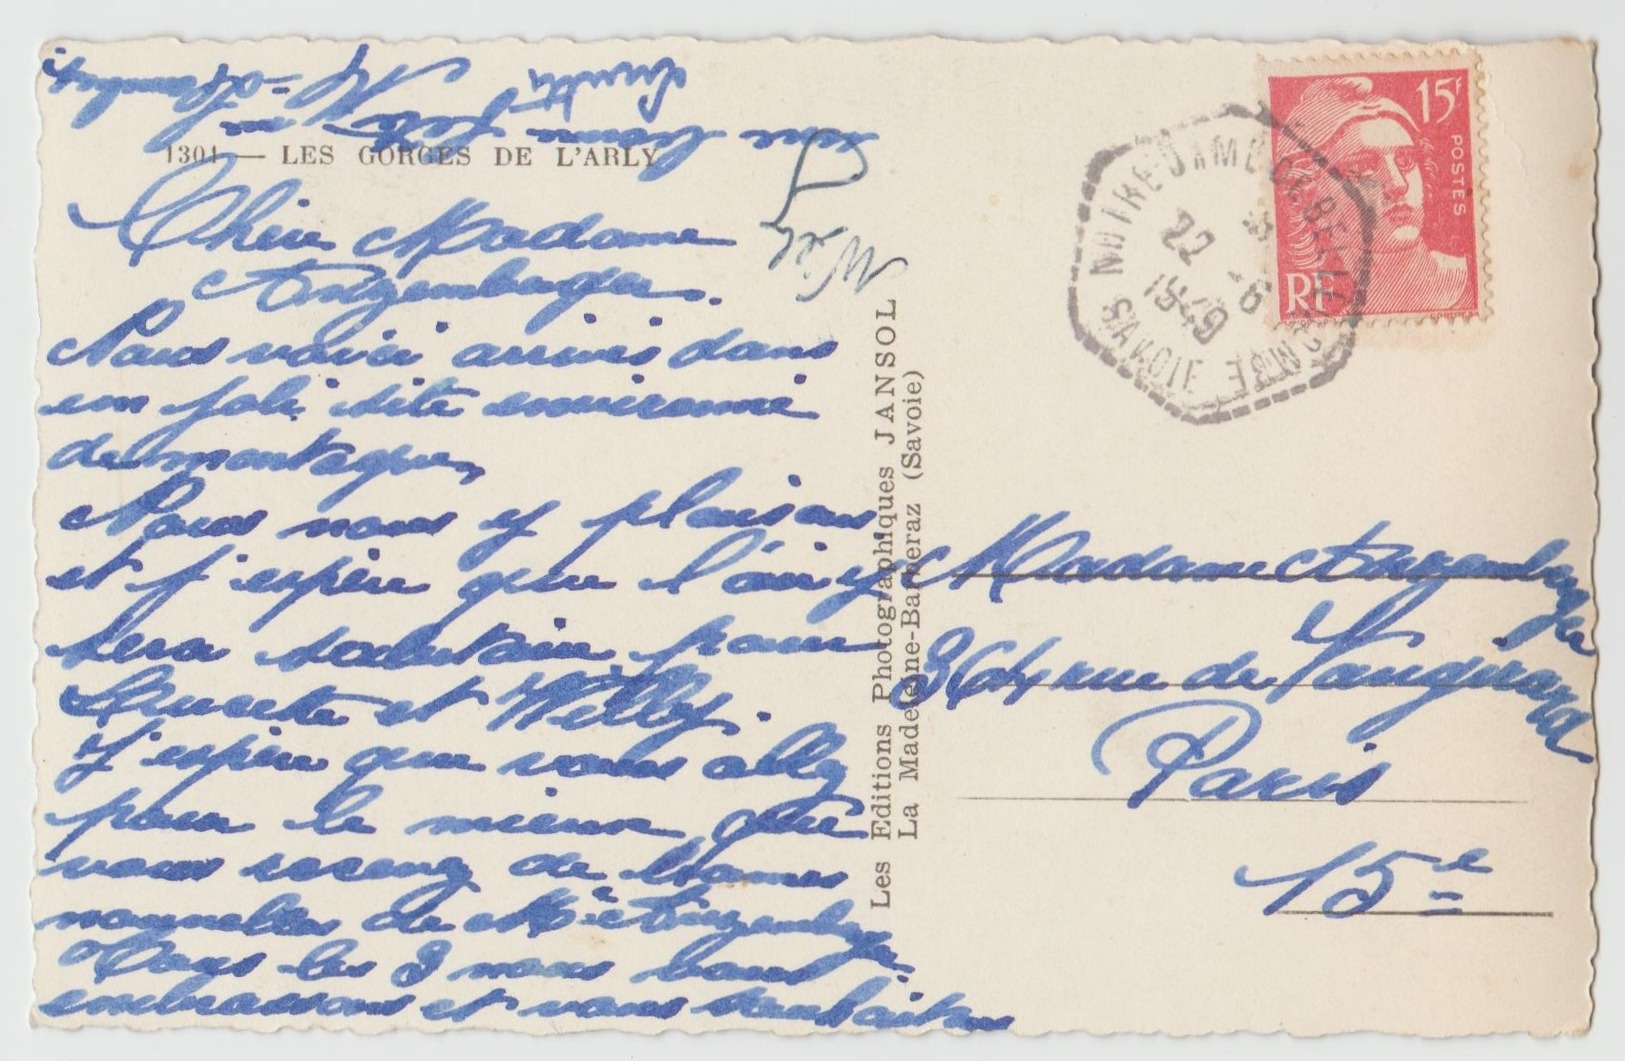 1301 — LES GORGES DE L'ARLY
Chère Madame
Anzemberger.
Nous voici arrivés dans
un joli site environné
de montagnes,
Nous nous y plaisons
et j'espère que l'air y
sera salutaire pour
Lucette et Willy.
J'espère que vous allez
pour le mieux, que
vous recevez de bonnes
nouvelles de Mr Anzemberger
Tous les 3 nous vous
embrassons et vous souhaitons
une bonne fête
Lucette
Willy
Les Editions Photographiques JANSOL
La Madeleine-Barberaz (Savoie)
15F
POSTES
RF
NOTRE DAME DE BELLECOMBE
22 -6
1949
SAVOIE
Madame Anzemberger
364 rue de Vaugirard
Paris
15e